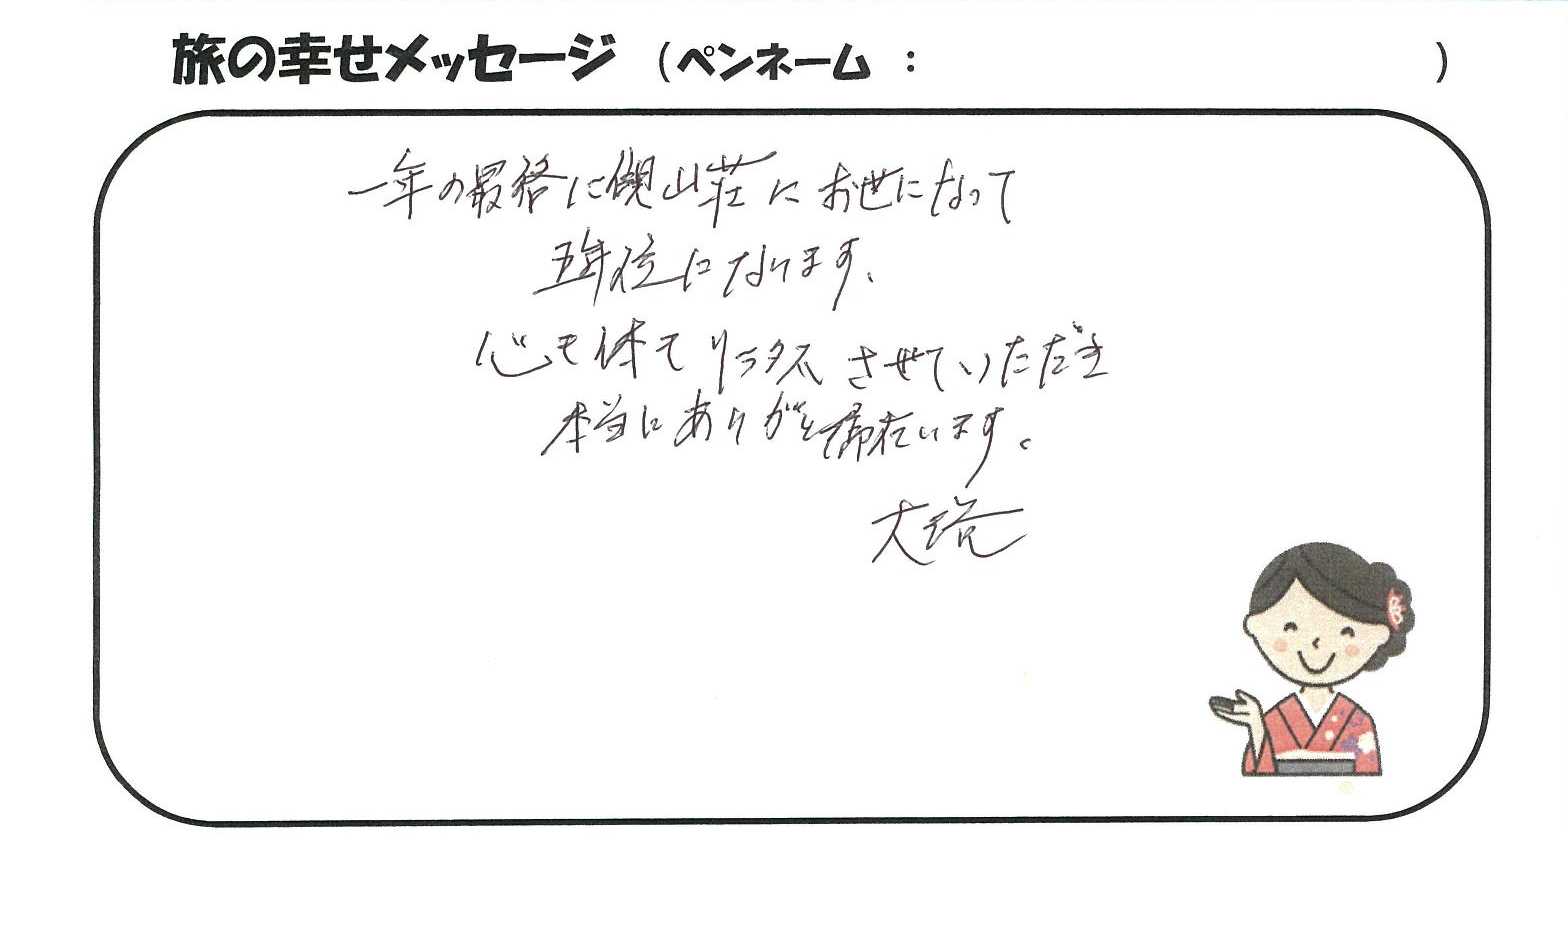 旅の幸せメッセージ (ペンネーム : )
一年の最終に観山荘にお世になって
五年位になります、
心も体もリラックスさせていただき
本当にありがと御在います。
大塔